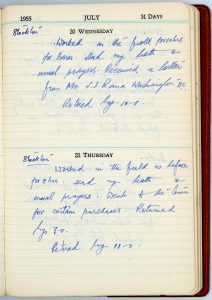 1955 JULY 31 DAYS
20 WEDNESDAY
Stockton
Worked in the field
for hours. Had my bath &
usual prayers. Received a letter
from Mr. J. J.
Retired by 10-0.
21 THURSDAY
Stockton
Worked in the field as before
for hrs. Had my bath &
usual prayers. Went to the town
for certain purchases. Returned
by 7-0.
Retired by 10-0.